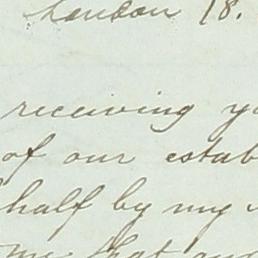 London 18.
receiving
of our estab
half by my
me that